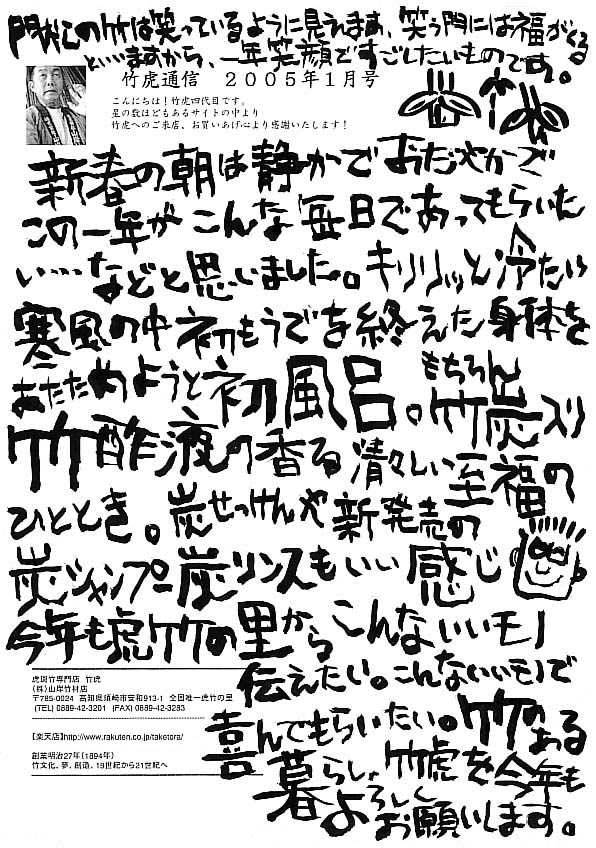 門松の竹は笑っているように見えます、笑う門には福がくる
といいますから、一年笑顔ですごしたいものです。
竹虎通信 2005年1月号
こんにちは!竹虎四代目です。
星の数ほどもあるサイトの中より
竹虎へのご来店、お買いあげ心より感謝いたします!
新春の朝は静かでおだやかで
この一年がこんな毎日であってもらいた
い…などと思いました。キリリッと冷たい
寒風の中初もうでを終えた身体を
あたためようと初風呂。もちろん竹炭入り
竹酢液の香る清々しい至福の
ひととき。炭せっけんや新発売の
炭シャンプー炭リンスもいい感じ
今年も虎竹の里からこんないいモノ
伝えたい。こんないいモノで
喜んでもらいたい。竹のある
暮らし、竹虎を今年も
よろしくお願いします。
虎斑竹専門店 竹虎
(株)山岸竹材店
〒785-0024 高知県須崎市安和913-1 全国唯一虎竹の里
(TEL) 0889-42-3201 (FAX) 0889-42-3283
【楽天店】http://www.rakuten.co.jp/taketora/
創業明治27年(1894年)
竹文化、夢、創造、19世紀から21世紀へ